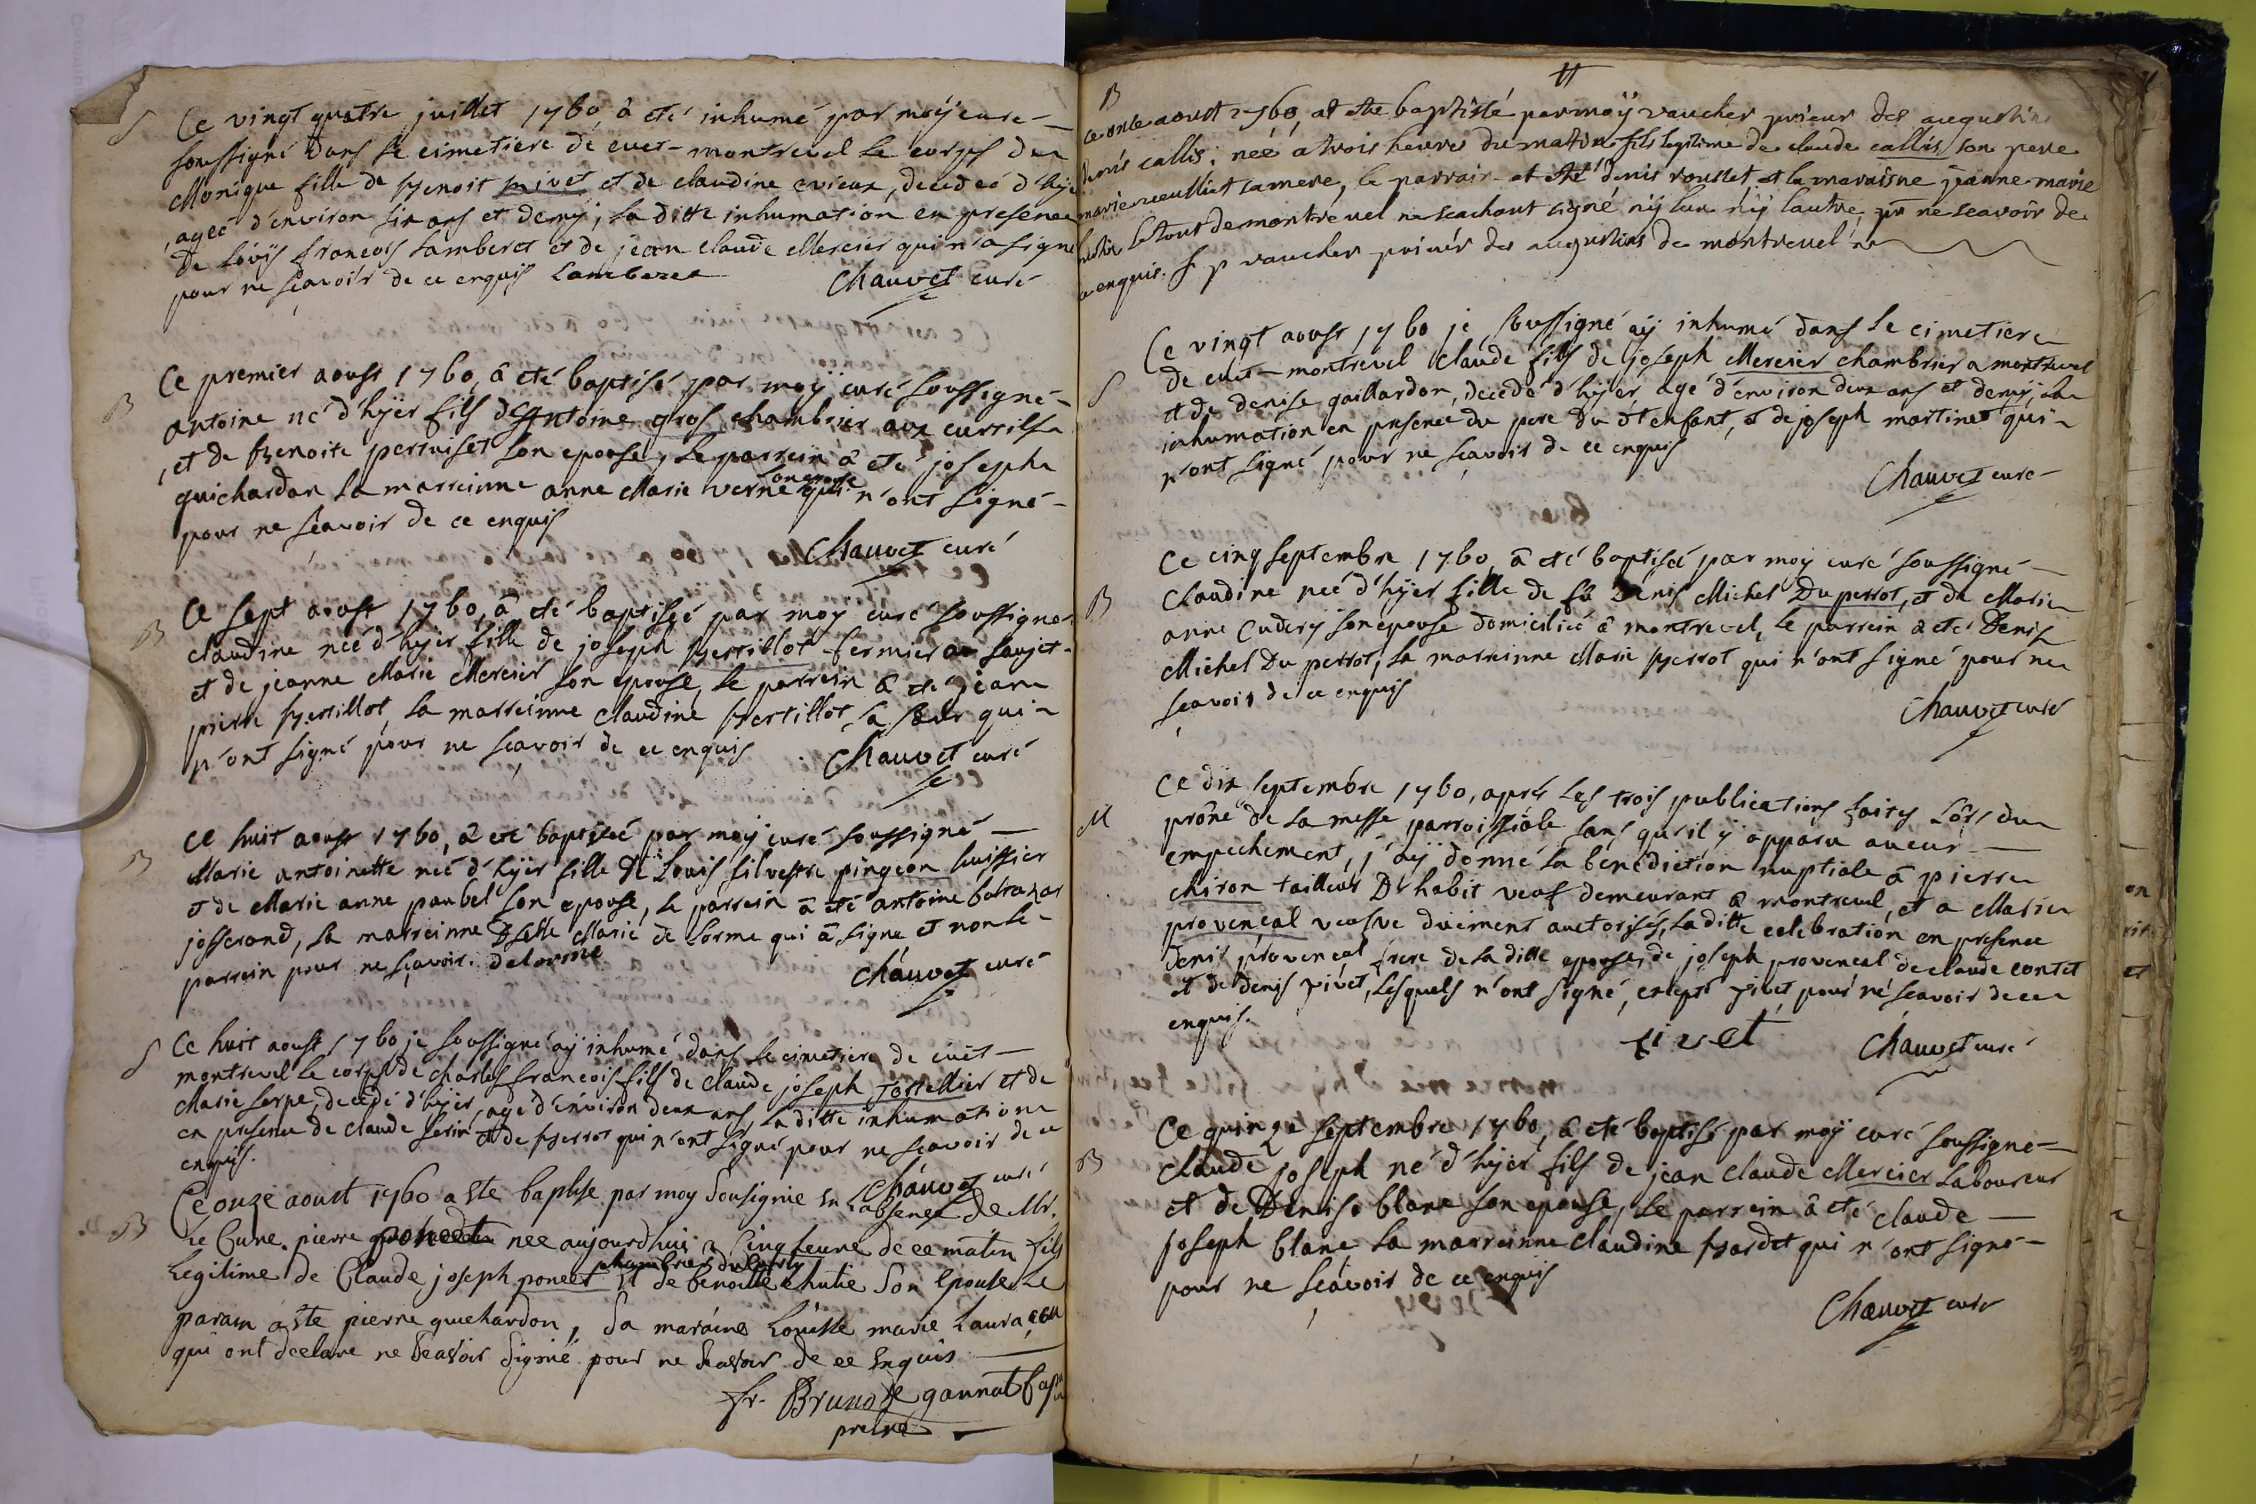 S
Ce vingt quatre juillet 1760, â eté inhumé par moÿ curé
soussigné dans le cimetiere de cuet-montrevel le corps de
Monique fille de Benoit pivet et de claudine cvieux, decedeé d'hÿer
ageé d'environ six ans et demÿ, la ditte inhumation en presence
de Loüis francois Lamberet et de jean claude Mercier qui n'a signé
pour ne sçavoir de ce enquis Lamberet Chauvet curé
B
Ce premier aoust 1760, â eté baptisé par moÿ curé soussigné
antoine né d'hÿer fils d'Antoine gros chambrier aux curtils
et de Benoite pertuiset son epouse, le parrein â eté joseph
guichardon la marreinne anne Marie verne son epouse qui n'ont signé
pour ne sçavoir de ce enquis
Chauvet curé
B
Ce sept aoust 1760, â eté baptisée par moy curé soussigné
claudine neé d'hÿer fille de joseph Bertillot fermier au saujet
et de jeanne Marie Mercier son epouse, le parrein â eté jean
pierre Bertillot, la marreinne claudine Bertillot sa sœur qui
n'ont signé pour ne sçavoir de ce enquis Chauvet curé
B
Ce huit aoust 1760, â eté baptiseé par moÿ curé soussigné
Marie antoinette neé d'hÿer fille de Louis silvestre pingeon huissier
et de Marie anne paubel son epouse, le parrein â eté antoine baltazar
josserand, la marreinne Dselle Marie de lorme qui â signé et non le
parrein pour ne sçavoir. delorme Chauvet curé
S
Ce huit aoust 1760 je soussigné aÿ inhumé dans le cimetiere de cuet
montrevel le corps de charles francois fils de claude joseph Tortellier et de
Marie serpe, decedé d'hÿer, agé d'environ deux ans, la ditte inhumation
en presence de claude serin et de perrot qui n'ont signé pour ne scavoir de ce
enquis. Chauvet curé
B
Ce onze aoust 1760 a ete baptise par moy sousignie en l'absence de Mr.
Le Cure. pierre poncet nee aujourdhui a Cinq heure de ce matin fils
Legitime de Claude joseph poncet chambrier et de benoitte chutie son Epouse Le
parain a ete pierre guichardon, Sa maraine Louisse marie
qui ont declare ne Seavoir Signie pour ne Seavoir de ce Enquis
fr. Bruno de gannat
pretre
11
B
Ce onze aoust 1760, at ete baptisté par moÿ vaucher prieur des augustins
denis callis, neé a trois heures du matin fils legitime de claude callis son pere
marie sa mere, le parrain at eté denis rousset et la maraisne jeanne marie
le tout de montrevel ne scachant signé nÿ lun nÿ lautre, pr ne scavoir de
enquis. f p vaucher prieur des augustins de montrevel
S
Ce vingt aoust 1760 je soussigné aÿ inhumé dans le cimetiere
de cuet-montrevel claude fils de joseph Mercier chambrier a montrevel
et de denise guillardon, decedé d'hÿer, agé d'environ deux ans et demÿ,
inhumation en presence du pere du dt enfant, et de joseph martinet qui
n'ont signé pour ne sçavoir de ce enquis
Chauvet curé
B
Ce cinq septembre 1760, â eté baptiseé par moy curé soussigné
Claudine neé d'hÿer fille de Denis Michel Du perrot, et de Marie
anne Cuderÿ son epouse domicilieé â montrevel, le parrein â eté Denis
Michel Du perrot, la marreinne Marie perrot qui n'ont signé pour ne
sçavoir de ce enquis
Chauvet curé
M
Ce dix septembre 1760, aprés les trois publications faites lors du
prône de la messe parroissiale sans qu'il ÿ apparu aucun
empechement, j'aÿ donné la benediction nuptiale â pierre
chiron tailleur D'habit veuf demeurant â montrevel, et a Marie
provencal veufve duement auctorisés, la ditte celebration en presence
denis provencal frere de la ditte epouse, de joseph provencal de claude contet
et de denis pivet, lesquels n'ont signé, excepté pivet, pour ne sçavoir de ce
enquis.
pivet Chauvet curé
B
Ce quinze septembre 1760, â eté baptisé par moÿ curé soussigné
claude joseph né d'hÿer fils de jean claude Mercier laboureur
et de Denise blanc son epouse, le parrein â eté claude
joseph blanc, la marreinne claudine pardet qui n'ont signé
pour ne sçavoir de ce enquis
Chauvet curé